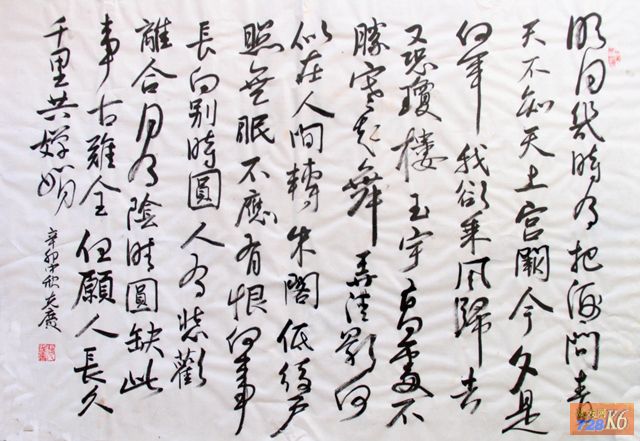 明月幾時有把酒問青
天不知天上宫闕今夕是
何年我欲乘風歸去
又恐瓊樓玉宇高處不
勝寒起舞弄清影何
似在人間轉朱閣低綺户
照無眠不應有恨何事
長向别時圓人有悲歡
離合月有陰晴圓缺此
事古難全但願人長久
千里共嬋娟
辛卯中秋
128 K6